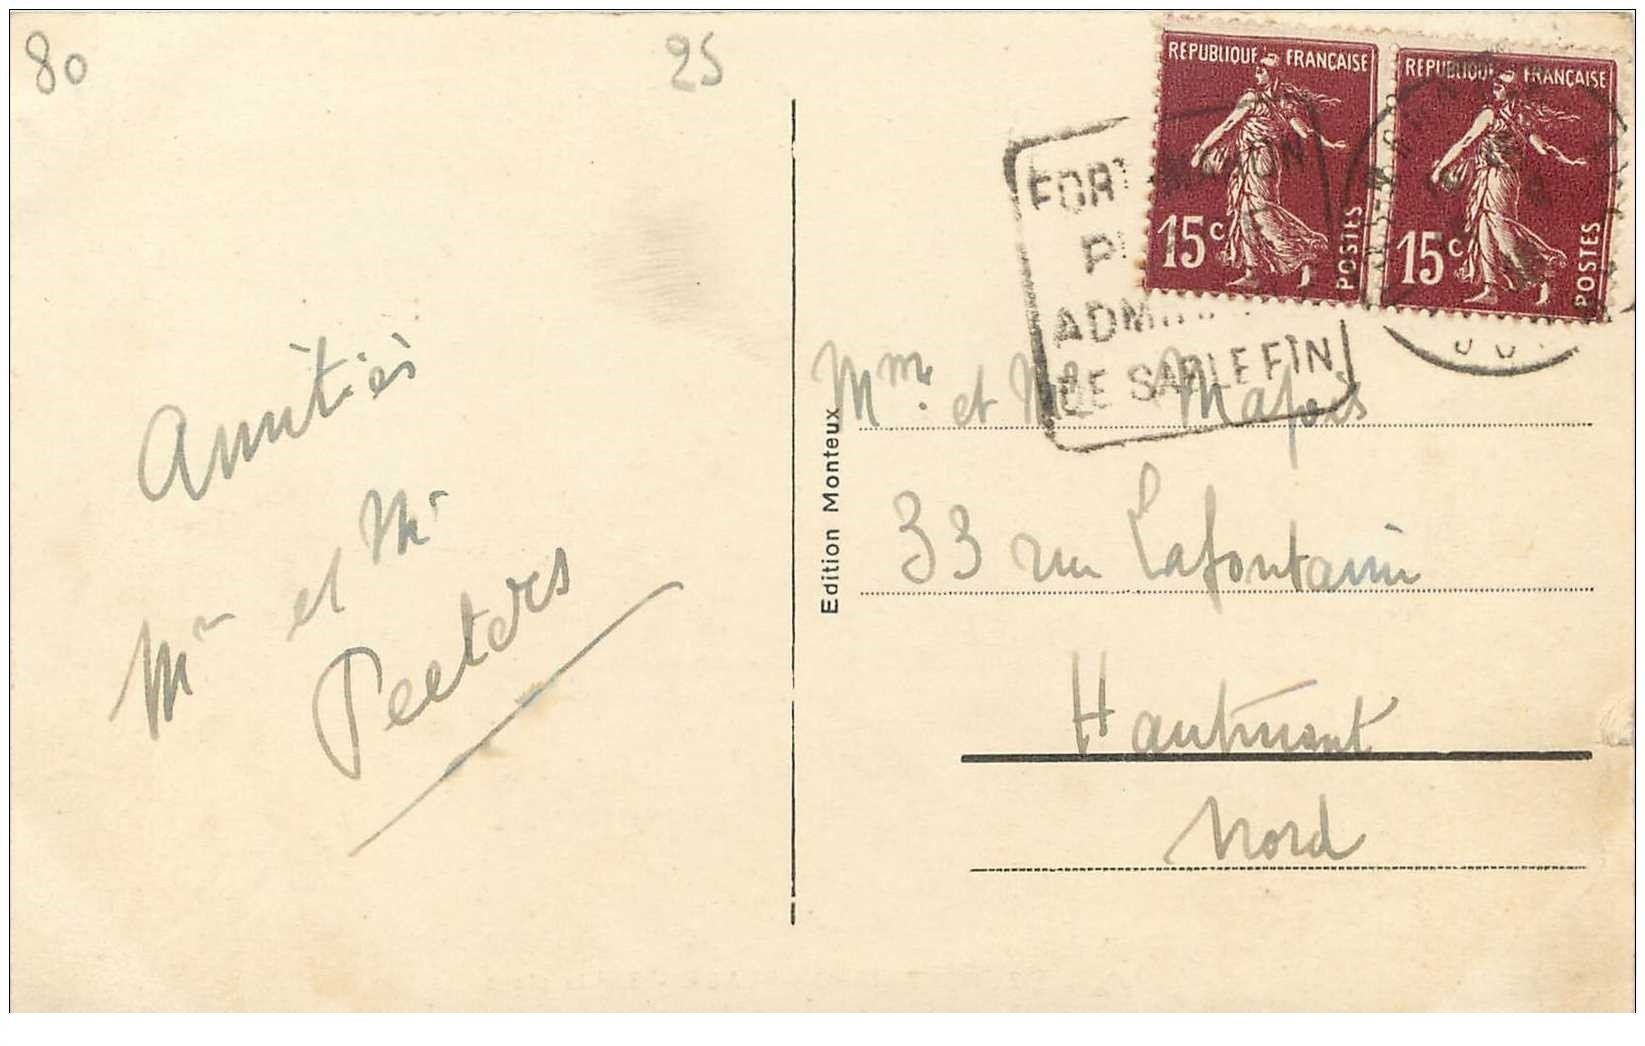 80
25
REPUBLIQUE FRANÇAISE
15c
POSTES
REPUBLIQUE FRANÇAISE
15c
POSTES
FORT MAHON
DE SABLE FIN
Amitiés
Mr et Mr
Peeters
Edition Monteux
Mme et Mr
33 rue Lafontaine
Hautmont
Nord